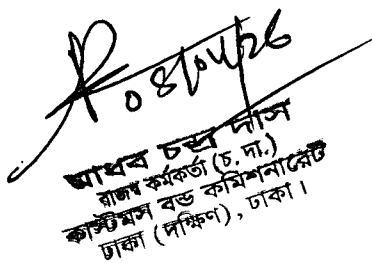 মাধব চন্দ্র দাস
রাজস্ব কর্মকর্তা (চ. দা.)
কাস্টমস বন্ড কমিশনারেট
ঢাকা (দক্ষিণ), ঢাকা।